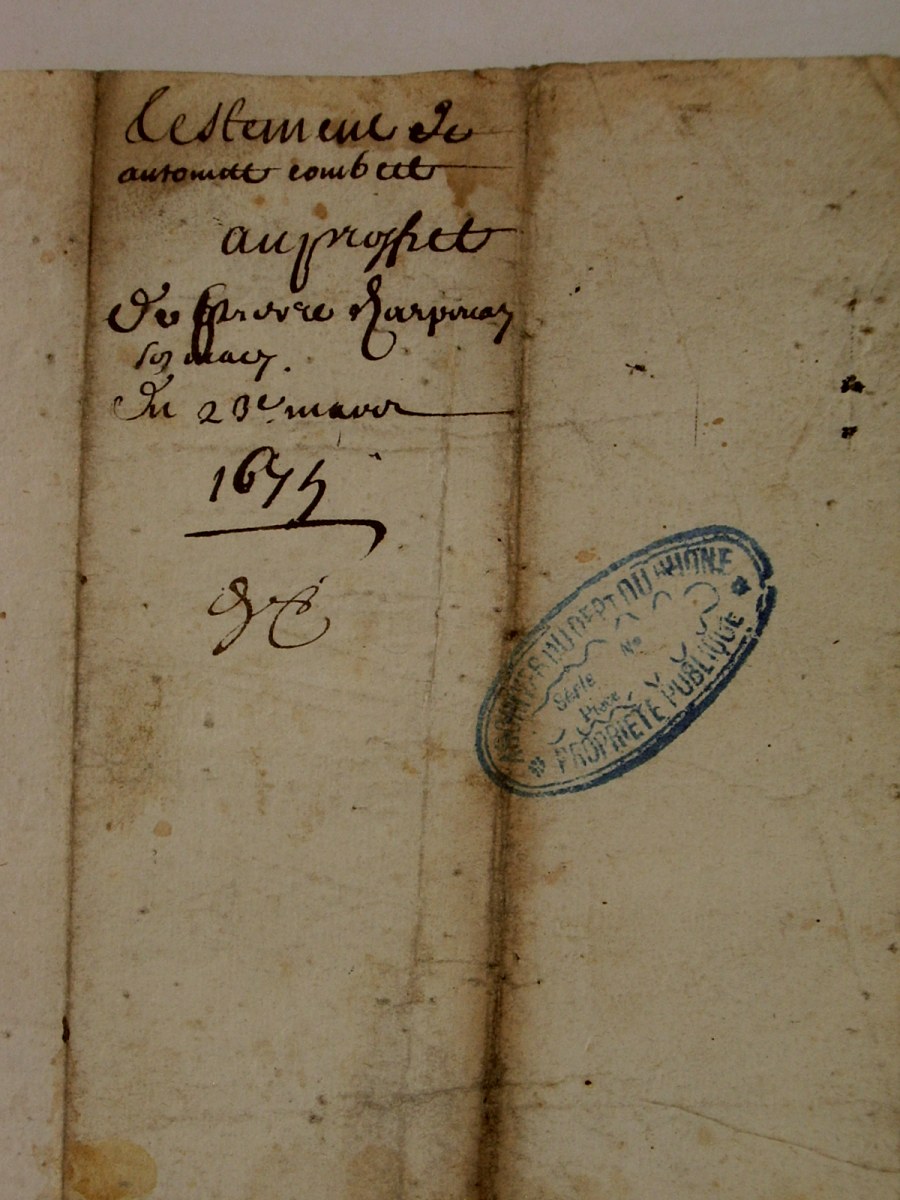 testement de
antoinette combett
au proffiet
de pierre
du 23e mars
1675
ARCHIVES DU DEPT DU RHONE
Série No
Pièce
PROPRIÉTÉ PUBLIQUE